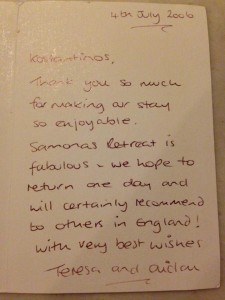 4th July 2006
Kostantinos,
Thank you so much
for making our stay
so enjoyable.
Samonas Retreat is
fabulous - we hope to
return one day and
will certainly recommend
to others in England!
With very best wishes
Teresa and